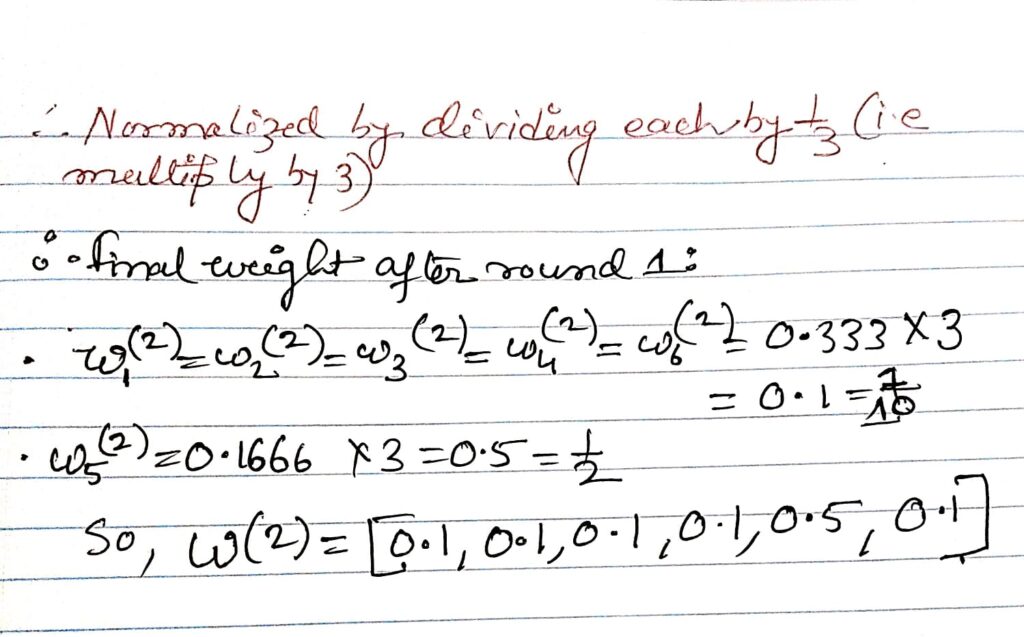 ∴ Normalized by dividing each by 1/3 (i.e
multiply by 3)
∴ final weight after round 1:
• w₁⁽²⁾ = w₂⁽²⁾ = w₃⁽²⁾ = w₄⁽²⁾ = w₆⁽²⁾ = 0.333 × 3
= 0.1 = 1/10
• w₅⁽²⁾ = 0.1666 × 3 = 0.5 = 1/2
So, w(2) = [0.1, 0.1, 0.1, 0.1, 0.5, 0.1]